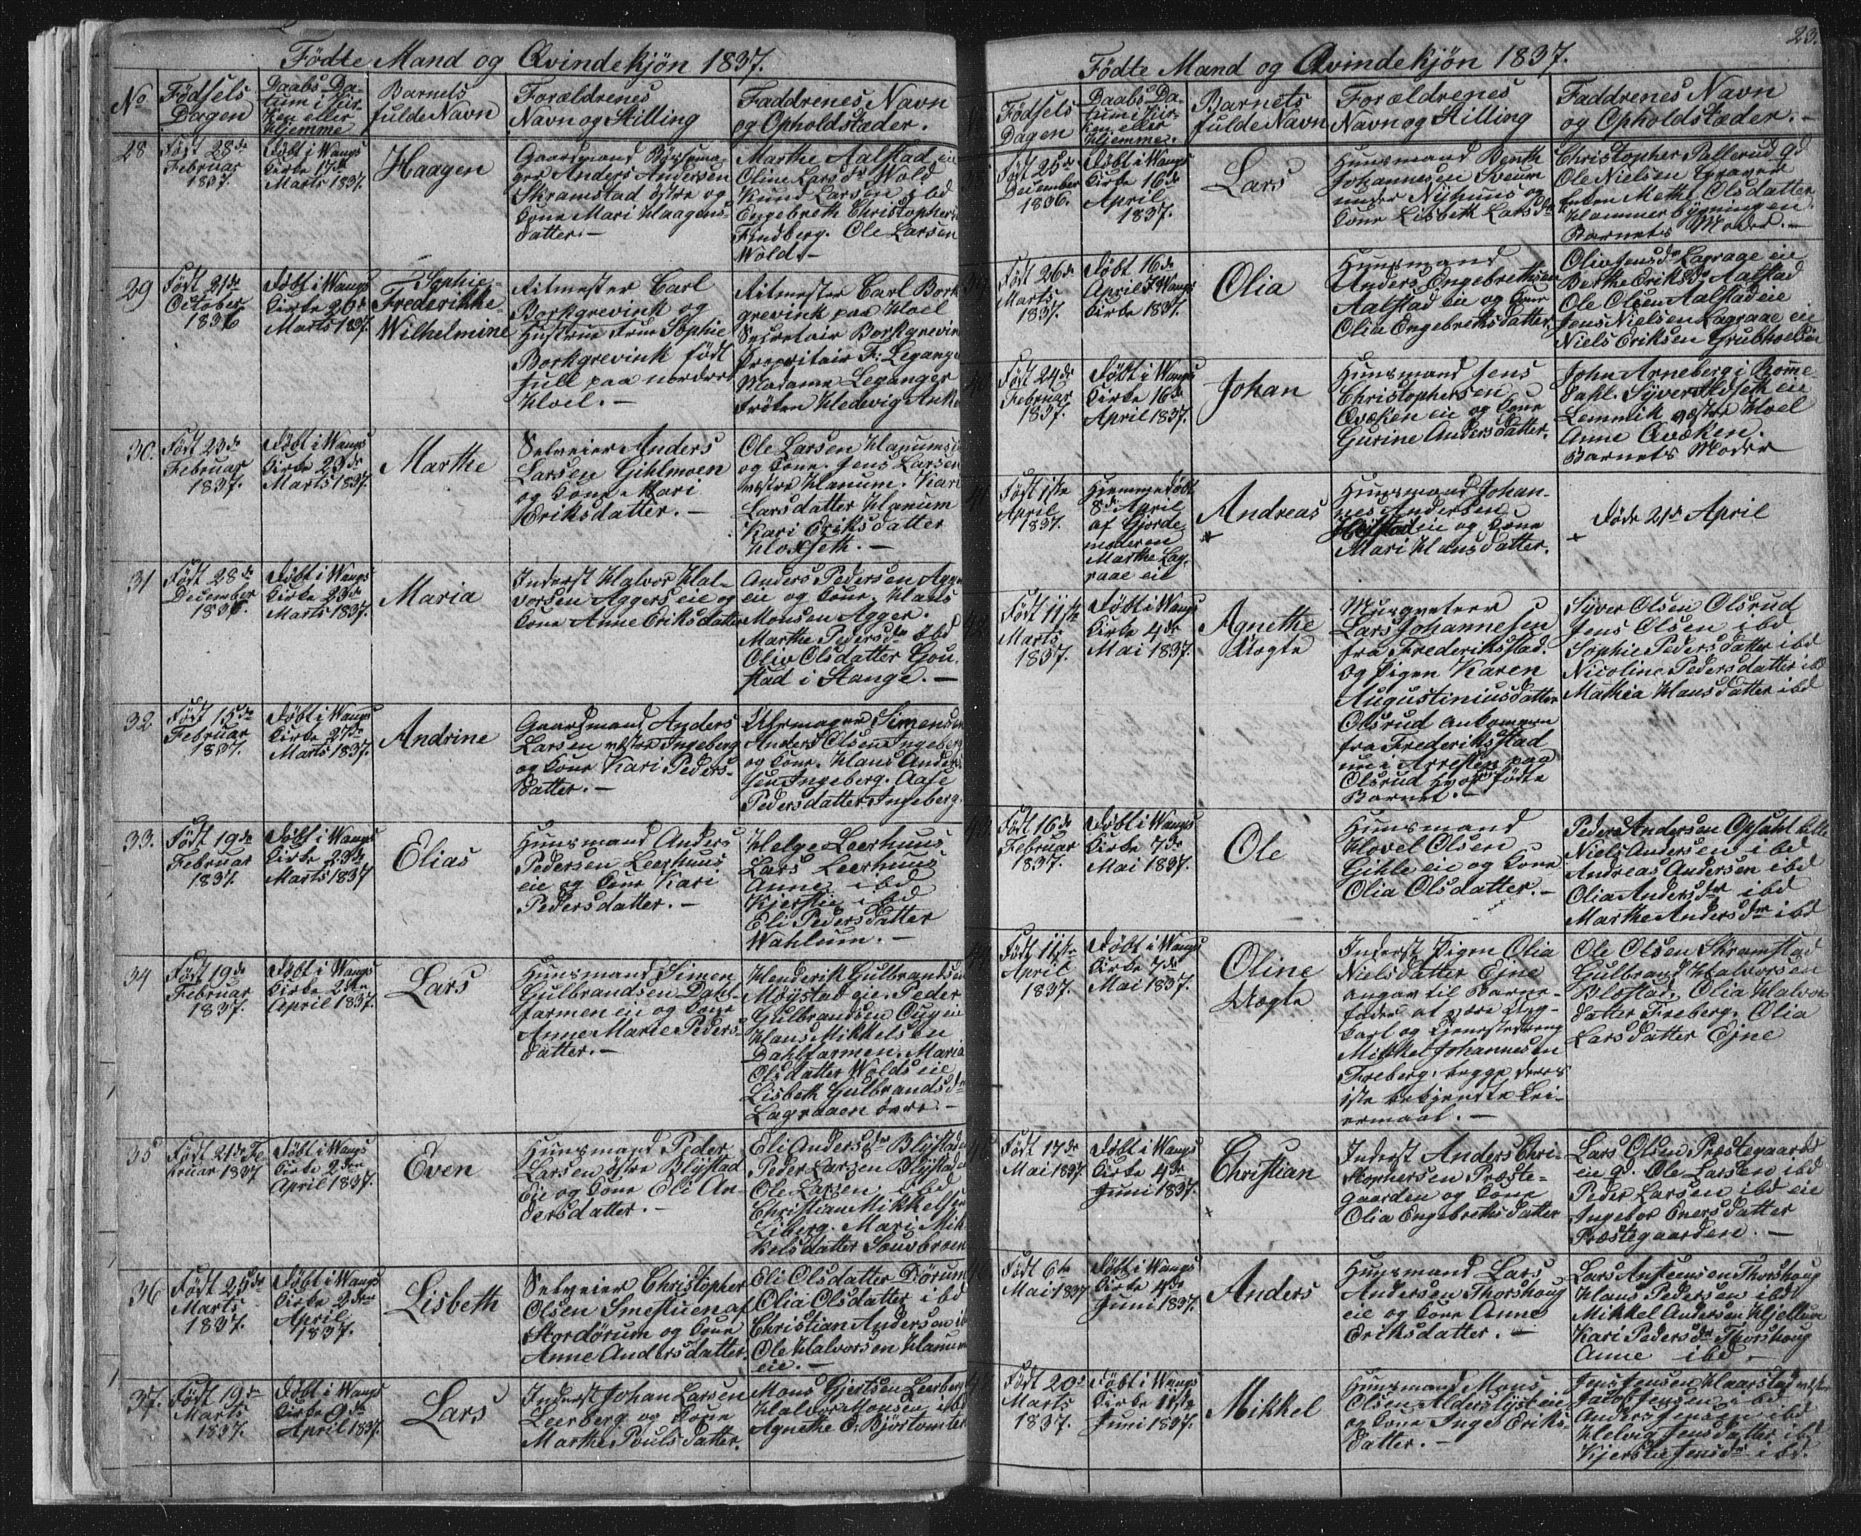 Fødte Mand og Qvindekjøn 1837.
No
Fødsels
Dagen
Daabs Da-
tum i Kir-
ken eller
Hjemme
Barnets
fulde Navn
Forældrenes
Navn og Stilling
Faddrenes Navn
og Opholdstæder.
28
Født 28de
Februar
1837.
Døbt i Wangs
Kirke 17de
Marts 1837.
Haagen
Gaardmand
Anders Andersen
Skramstad østre og
Kone Mari Haagens
datter. —
Marthe Aalstad eie
Oline Larsdr Wold
Knud Larsen ibd
Engebreth Christophers
Findberg. Ole Larsen
Wold. —
29
Født 21de
October
1836
Døbt i Wangs
Kirke 26de
Marts 1837.
Sophie
Frederikke
Wilhelmine
Ritmester Carl
Borkgrevink og
Hustrue Frue Sophie
Borkgrevink født
Jull paa nordere
Hoel. —
Ritmester Carl Bork
grevink paa Hoel
Sekretair Borkgrevin
Propritair F: Leganger
Madame Leganger
Frøken Hedevig Anke
30.
Født 23de
Februar
1837.
Døbt i Wangs
Kirke 23de
Marts 1837.
Marthe
Selveier Anders
Larsen Gihlmoen
og Kone Kari
Eriksdatter. —
Ole Larsen Hanum
og Kone. Jens Larsen
vestre Hanum. Kari
Larsdatter Hanum
Kari Eriksdatter
Hoxseth. —
31
Født 28de
December
1836.
Døbt i Wangs
Kirke 23de
Marts 1837.
Maria
Inderst Halvor Hal-
vorsen Aggers eie og
Kone Anne Eriksdatter
Anders Pedersen Agger
eie og Kone. Hans
Monsen Agger.
Marthe Pedersdr Ibd
Oliv Olsdatter Gou
stad i Stange. —
32
Født 15de
Februar
1837.
Døbt i Wangs
Kirke 27de
Marts 1837.
Andrine
Gaardmand Anders
Larsen vestre Ingeberg
og Kone Kari Peders-
datter. —
Uhrmager Simensen
Anders Olsen Ingeberg
og Kone. Hans Anders
Ingeberg. Aase
Pedersdatter Ingeberg.
33.
Født 19de
Februar
1837.
Døbt i Wangs
Kirke 23de
Marts 1837
Elias
Huusmand Anders
Pedersen Leerhuus
eie og Kone Kari
Pedersdatter. —
Helge Leerhuus
Lars Leerhuus
Anne ibd
Kjersti ibd
Eli Pedersdatter
Wahlum. —
34
Født 19de
Februar
1837.
Døbt i Wangs
Kirke 2den
April 1837.
Lars
Huusmand Simen
Gulbrandsen Dahl-
farmen eie og Kone
Anne Marie Peders-
datter. —
Henderik Gulbrandsen
Møystad eie. Peder
Gulbrandsen
Hans Mikkelsen
Dahlfarmen. Maria
Olsdatter Wolds eie
Lisbeth Gulbrandsdr
Lagraaen øvre. —
35
Født 21de Fe
bruar 1837
Døbt i Wangs
Kirke 2den
April 1837.
Even
Huusmand Peder
Larsen østre Blystad
Eie og Kone Eli An-
dersdatter. —
Eli Andersdr Blystad
Peder Larsen Blystad
Ole Larsen ibd
Christian Mikkelsen
Liberg. Mari Mik
kelsdatter
36
Født 25de
Marts
1837.
Døbt i Wangs
Kirke 2den
April
1837.
Lisbeth
Selveier Christopher
Olsen Smestuen af
Stordørum og Kone
Anne Andersdatter
Eli Olsdatter Dørum
Olia Olsdatter ibd
Christian Andersen ib
Ole Halvorsen Hanum
eie. —
37.
Født 19de
Marts
1837.
Døbt i Wangs
Kirke 9de
April 1837.
Lars
Inderst Johan Larsen
Leerberg og Kone
Marthe Pouls datter.
Mons Gjertsen Leerberg
Halvor Monsen ibd
Agnethe

Fødte Mand og Qvindekjøn 1837.
23.
Fødsels
Dagen
Daabs Da-
tum i Kir-
ken eller
Hjemme.
Barnets
fulde Navn
Forældrenes
Navn og Stilling
Faddrenes Navn
og Opholdstæder. —
Født 25de
December
1836.
Døbt i Wangs
Kirke 16de
April
1837.
Lars
Huusmand Benth
Johannesen Sveum
Nyhuus og
Kone Lisbeth Larsdr
Christopher Pallerud gd
Ole Nielsen
Enken Methe Olsdatter
Hammer bygningen.
Barnets Moder. —
Født 26de
Marts
1837.
Døbt 16de
April i Wangs
Kirke 1837.
Olia
Huusmand
Anders Engebrethsen
Aalstad eie og Kone
Olia Engebrethsdatter.
Oliv Jensdr Lagrage eie
Berthe Eriksdr Aalstad
Ole Olsen Aalstad eie
Jens Nielsen Lagraae eie
Niels Eriksen Grubhoelseie
Født 24de
Februar
1837.
Døbt i Wangs
Kirke 16de
April 1837.
Johan
Huusmand Jens
Christophersen
Qvæken eie og Kone
Gurine Andersdatter.
John Arneberg i Rome
dahl. Syver Alseth eie
Lemmik vestre Hoel
Anne Qvæken.
Barnets Moder
Født 1ste
April
1837.
Hjemmedøbt
8de April
af Gjorde
moderen
Marthe Lag-
raae eie
Andreas
Huusmand Johan-
nes Andersen
eie og Kone
Mari Hansdatter.
Døde 21de April
Født 11te
Marts
1837.
Døbt i Wangs
Kirke 4de
Mai 1837.
Agnethe
Uægte
Musqueteer
Lars Johannesen
fra Frederiksstad.
og Pigen Karen
Augustiniusdatter
Olsrud ankommen
fra Frederiksstad
nu i Arresten paa
Olsrud hvor fødte
Barnet. —
Syver Olsen Olsrud
Jens Olsen ibd
Sophie Pedersdatter ibd
Nicoline Pedersdatter ibd
Mathia Hansdatter ibd
Født 16de
Februar
1837.
Døbt i Wangs
Kirke 7de
Mai 1837.
Ole
Huusmand
Hovel Olsen
Gihle eie og Kone
Olia Olsdatter. —
Peder Andersen Opsahl
Niels Andersen ibd
Andreas Andersen ibd
Olia Andersdr ibd
Marthe Andersdr ibd
Født 11te
April
1837.
Døbt i Wangs
Kirke 7de
Mai 1837.
Oline
Uægte
Inderst Pigen Olia
Nielsdatter Ejne
angav til Barne-
fader at være Ung-
karl og tjenestedreng
Mikkel Johannesen
Freberg. begge deres
1ste bekjendte Lei-
ermaal. —
Ole Olsen Skramstad
Gulbrand Halvorsen
Blystad, Olia Halvor
datter Freberg. Olia
Larsdatter Ejne
Født 17de
Mai 1837.
Døbt i Wangs
Kirke 4de
Juni 1837.
Christian
Inderst Anders Chri-
stophersen Præste-
gaarden og Kone
Olia Engebrethsdatter
Lars Olsen Præstegaards
eie gd. Ole Larsen ibd
Peder Larsen ibd eie
Ingebor Enersdatter
Præstegaarden. —
Født 6te
Mai 1837
Døbt i Wangs
Kirke 4de
Juni 1837.
Anders
Huusmand Lars
Andersen Thorshoug
eie og Kone Anne
Eriksdatter. —
Lars Anstensen Thorshoug
Hans Pedersen ibd
Mikkel Andersen Hjellum
Kari Pedersdr Thorshoug
Anne ibd —
Født 20de
Marts
1837.
Døbt i Wangs
Kirke 11te
Juni 1837.
Mikkel
Huusmand Mons
Olsen Alderslyst eie
og Kone Inger Eriks-
datter. —
Jens Jensen Haarstad vestre
Jacob Jensen ibd.
Anders Jensen ibd
Helvig Jensdatter ibd
Kjersti Jensdr ibd.